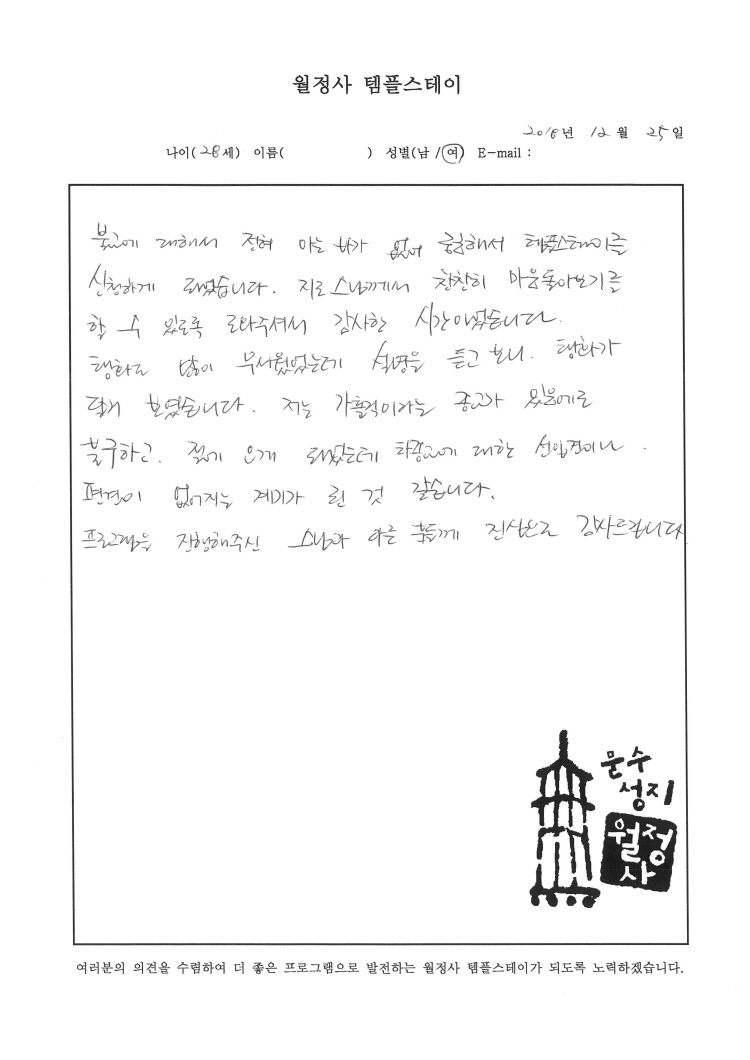 월정사 템플스테이
2018년 12월 25일
나이(28세) 이름( ) 성별(남 / 여) E-mail :
불교에 대해서 전혀 아는 바가 없어 궁금해서 템플스테이를
신청하게 되었습니다. 지도스님께서 찬찬히 마음돌아보기를
할 수 있도록 도와주셔서 감사한 시간이었습니다.
탱화도 많이 무서웠었는데 설명을 듣고 보니. 탱화가
달리 보였습니다. 저는 가톨릭이라는 종교가 있음에도
불구하고. 절에 오게 되었는데 타종교에 대한 선입견이나.
편견이 없어지는 계기가 된 것 같습니다.
프로그램을 진행해주신 스님과 다른 분들께 진심으로 감사드립니다
문수
성지
월정
사
여러분의 의견을 수렴하여 더 좋은 프로그램으로 발전하는 월정사 템플스테이가 되도록 노력하겠습니다.